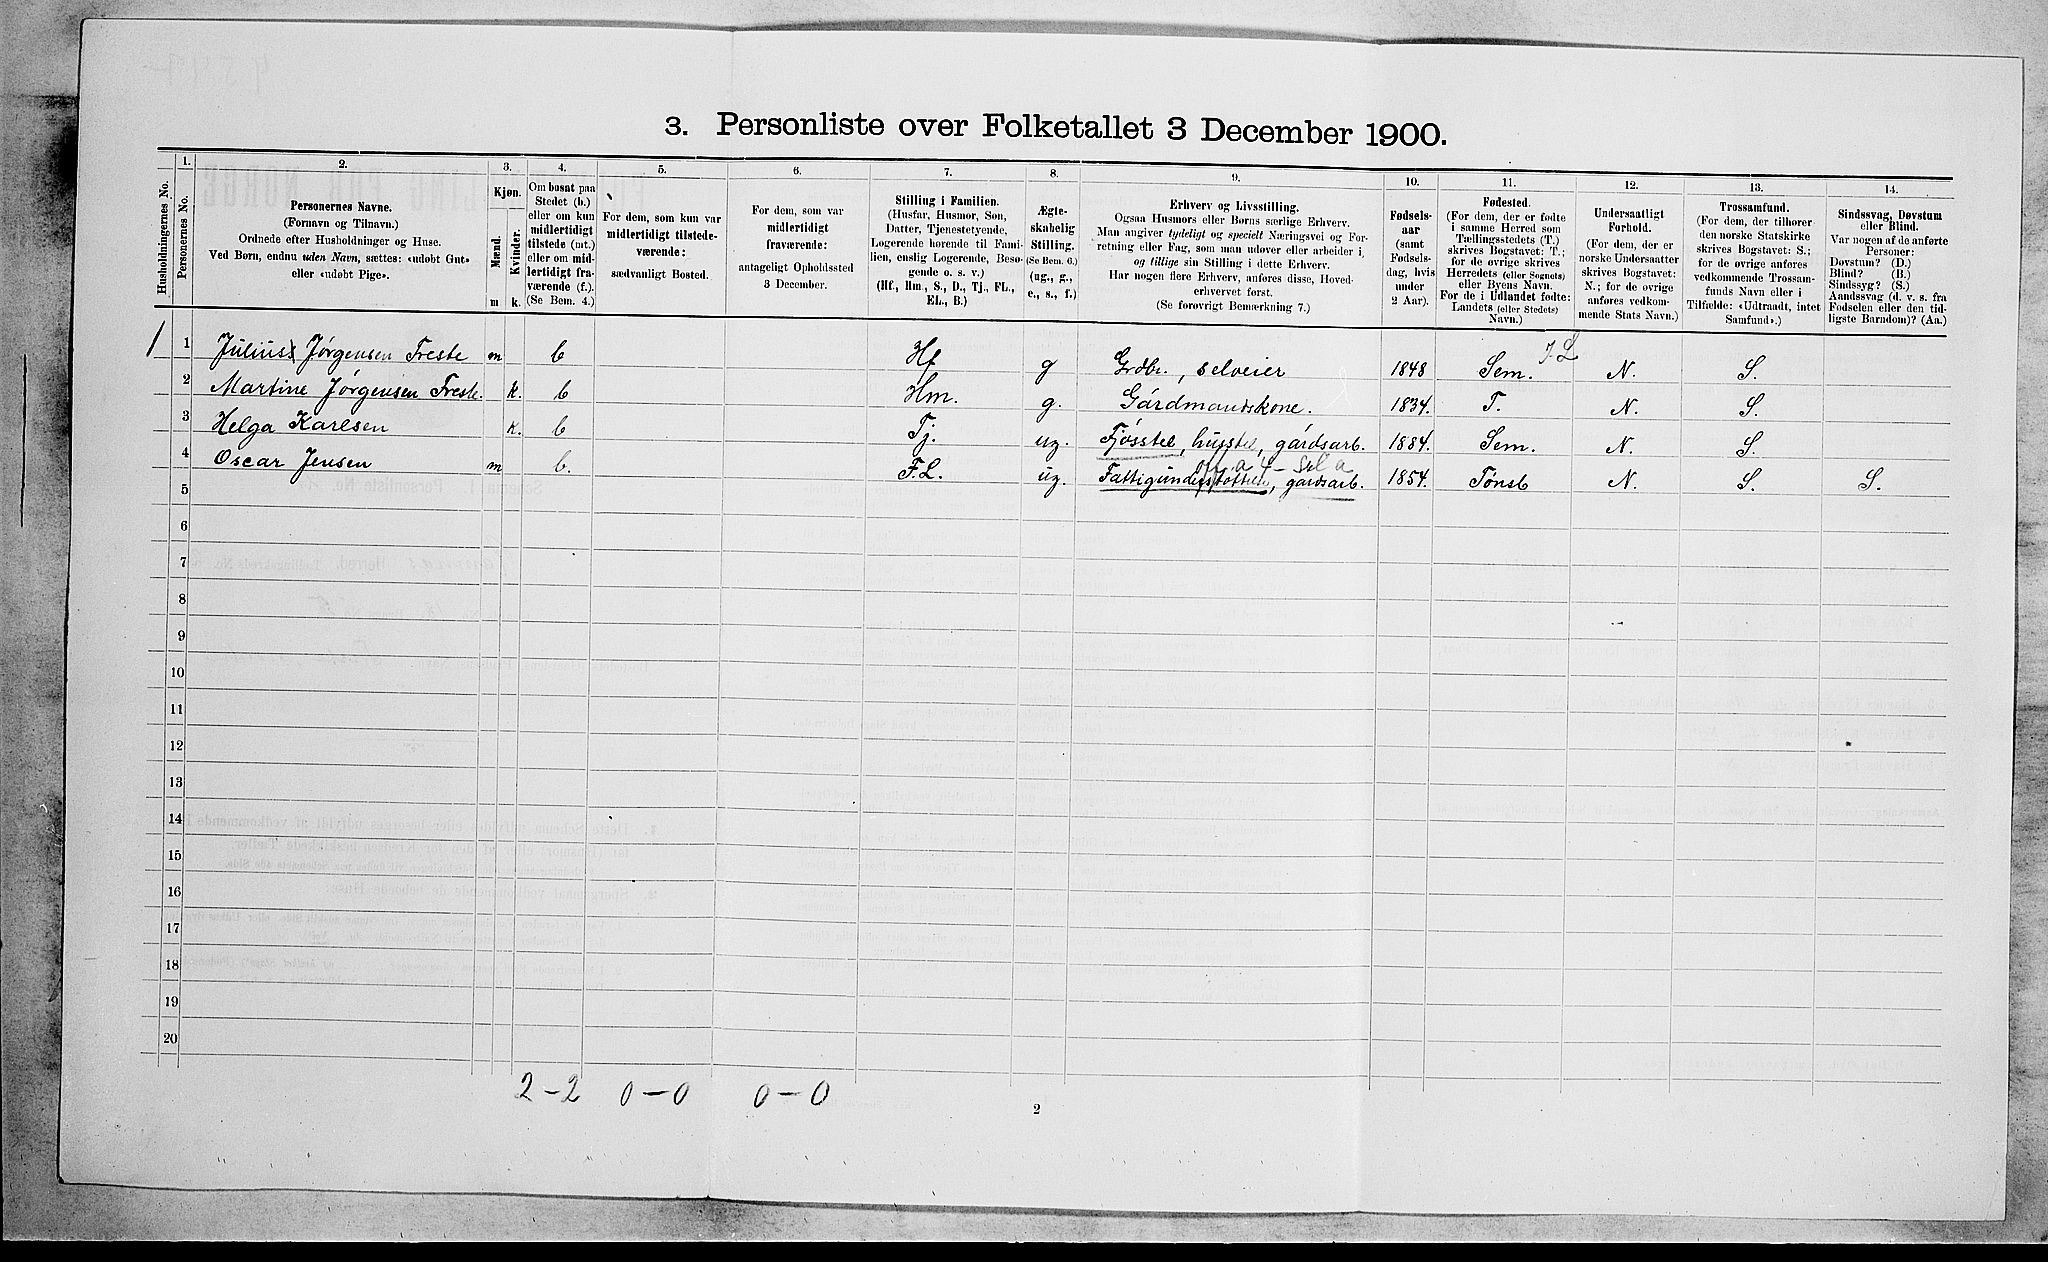 3. Personliste over Folketallet 3 December 1900.
Husholdningernes No.
1.
Personernes No.
2.
Personernes Navne.
(Fornavn og Tilnavn.)
Ordnede efter Husholdninger og Huse.
Ved Børn, endnu uden Navn, sættes: «udøbt Gut»
eller «udøbt Pige».
3.
Kjøn.
Mænd.
Kvinder.
m
k.
4.
Om bosat paa
Stedet (b.)
eller om kun
midlertidigt
tilstede (mt.)
eller om mid-
lertidigt fra-
værende (f.).
(Se Bem. 4.)
5.
For dem, som kun var
midlertidigt tilstede-
værende:
sædvanligt Bosted.
6.
For dem, som var
midlertidigt
fraværende:
antageligt Opholdssted
3 December.
7.
Stilling i Familien.
(Husfar, Husmor, Søn,
Datter, Tjenestetyende,
Logerende hørende til Fami-
lien, enslig Logerende, Besø-
gende o. s. v.)
(Hf., Hm., S., D., Tj., FL.,
EL., B.)
8.
Ægte-
skabelig
Stilling.
(Se Bem. 6.)
(ug., g.,
e., s., f.)
9.
Erhverv og Livsstilling.
Ogsaa Husmors eller Børns særlige Erhverv.
Man angiver tydeligt og specielt Næringsvei og For-
retning eller Fag, som man udøver eller arbeider i,
og tillige sin Stilling i dette Erhverv.
Har nogen flere Erhverv, anføres disse, Hoved-
erhvervet først.
(Se forøvrigt Bemærkning 7.)
10.
Fødsels-
aar
(samt
Fødsels-
dag, hvis
under
2 Aar).
11.
Fødested.
(For dem, der er fødte
i samme Herred som
Tællingsstedets (T.)
skrives Bogstavet: T.;
for de øvrige skrives
Herredets (eller Sognets)
eller Byens Navn.
For de i Udlandet fødte:
Landets (eller Stedets)
Navn.)
12.
Undersaatligt
Forhold.
(For dem, der er
norske Undersaatter
skrives Bogstavet:
N.; for de øvrige
anføres vedkom-
mende Stats Navn.)
13.
Trossamfund.
(For dem, der tilhører
den norske Statskirke
skrives Bogstavet: S.;
for de øvrige anføres
vedkommende Trossam-
funds Navn eller i
Tilfælde: «Udtraadt, intet
Samfund».)
14.
Sindssvag, Døvstum
eller Blind.
Var nogen af de anførte
Personer:
Døvstum? (D.)
Blind? (B.)
Sindssyg? (S.)
Aandssvag (d. v. s. fra
Fødselen eller den tid-
ligste Barndom)? (Aa.)
J. L
1 1 Julius Jørgensen Freste m b Hf g Grdbr., selveier 1848 Sem. N. S.
2 Martine Jørgensen Freste. k. b Hm. g. Gårdmandskone. 1834. T. N. S.
3 Helga Karlsen k. b Tj. ug. Fjøsstel, husstel, gårdsarb. 1884. Sem. N. S.
4 Oscar Jensen m b. F.L. ug. Fattigunderstøttelse, gårdsarb. 1854. Tønsb N. S. S.
5
6
7
8
9
10
11
12
13
14
15
16
17
18
19
20
2-2 0-0 0-0
2